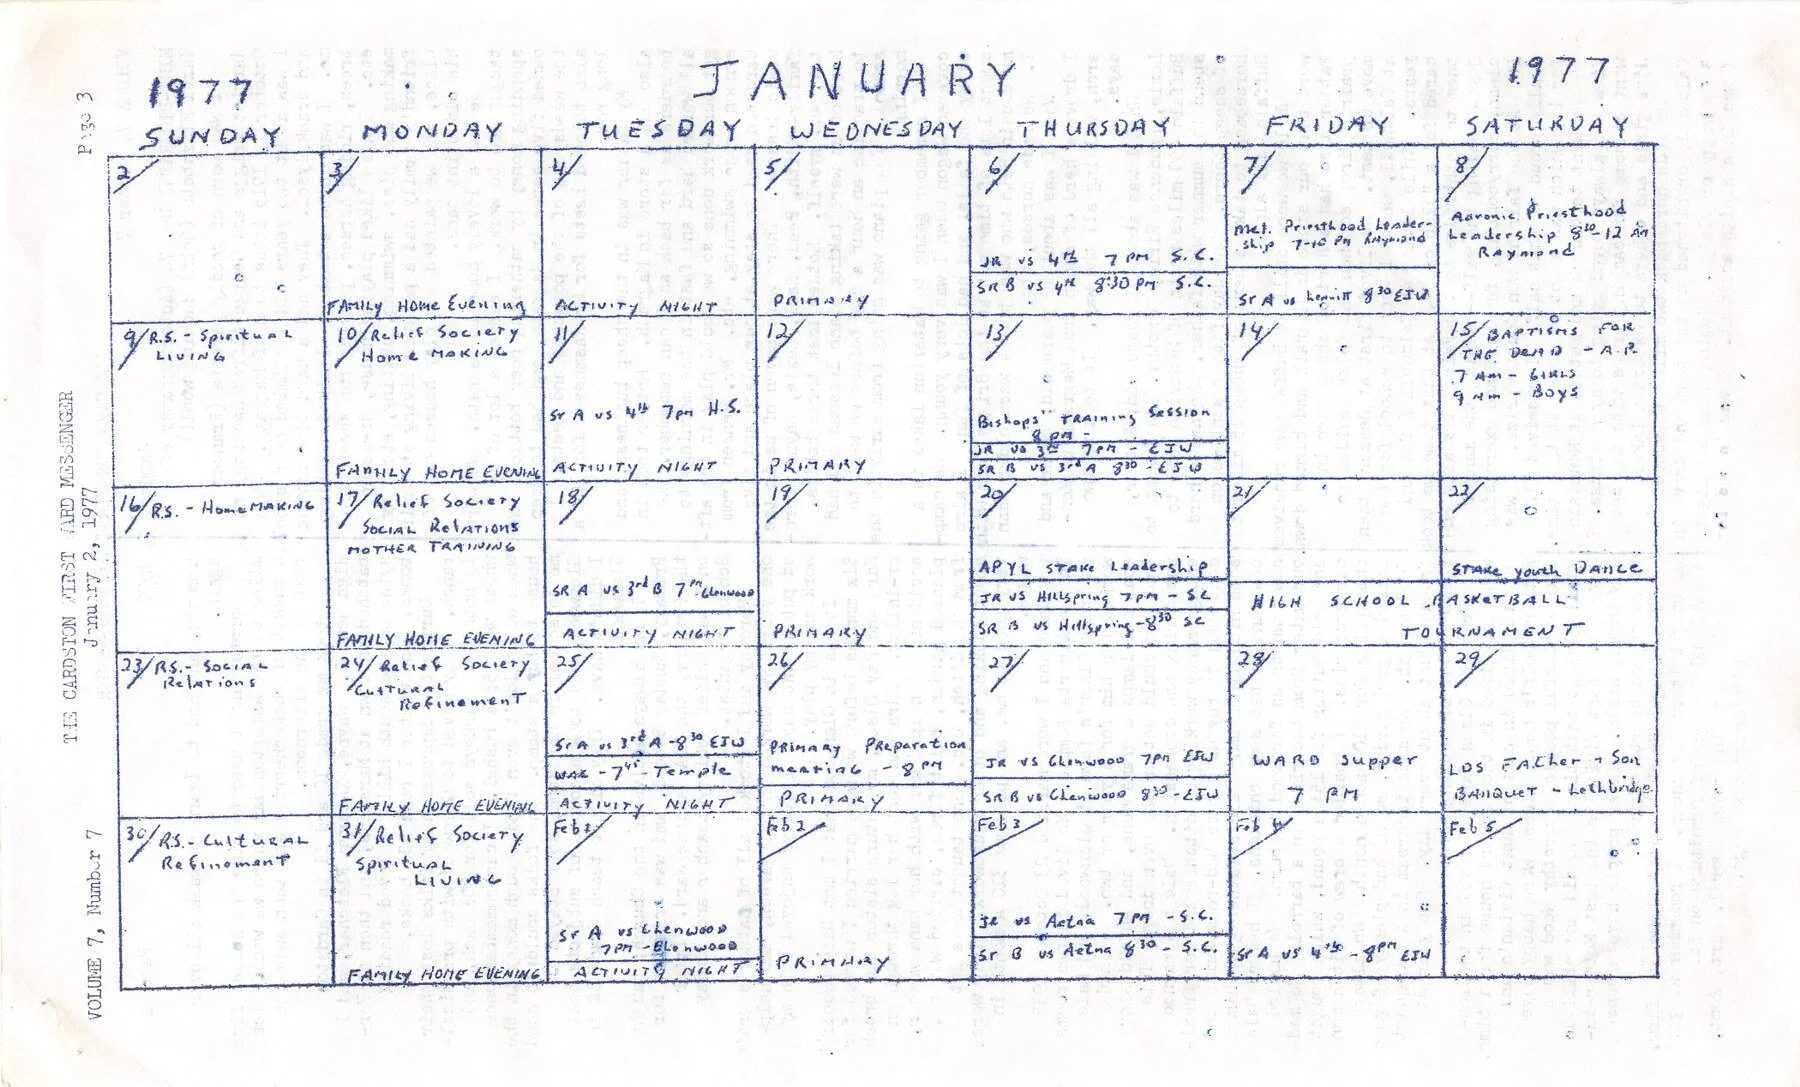 1977
JANUARY
1977
SUNDAY MONDAY TUESDAY WEDNESDAY THURSDAY FRIDAY SATURDAY
2/
3/
FAMILY HOME EVENING
4/
ACTIVITY NIGHT
5/
PRIMARY
6/
JR vs 4th 7 PM S.C.
SR B vs 4th 8:30 PM S.C.
7/
Mel. Priesthood Leader-
ship 7-10 PM Raymond
Sr A vs Leavitt 8 30 EJW
8/
Aaronic Priesthood
Leadership 8 30 - 12 AM
Raymond
9/ R.S. - Spiritual
LIVING
10/ Relief Society
Home MAKING
FAMILY HOME EVENING
11/
Sr A vs 4th 7pm H.S.
ACTIVITY NIGHT
12/
PRIMARY
13/
Bishops' TRAINING SESSION
8 pm -
JR vs 3rd 7PM - EJW
SR B vs 3rd A 8 30 - EJW
14/
15/ BAPTISMS FOR
THE DEAD - A.P.
7 Am - GIRLS
9 Am - Boys
16/ R.S. - HomeMAKING
17/ Relief Society
SOCIAL RelATIONS
MOTHER TRAINING
FAMILY HOME EVENING
18/
SR A vs 3rd B 7 PM Glenwood
ACTIVITY NIGHT
19/
PRIMARY
20/
APYL STAKE Leadership
JR VS Hillspring 7PM - SC
SR B vs Hillspring - 8 30 SC
21/
22/
STAKE youth DANCE
HIGH SCHOOL BASKETBALL
TOURNAMENT
23/ R.S. - SOCIAL
Relations
24/ Relief Society
CULTURAL
RefinemenT
FAMILY HOME EVENING
25/
Sr A vs 3rd A - 8 30 EJW
WAR - 7 45 - Temple
ACTIVITY NIGHT
26/
PRIMARY PReparation
meeting - 8 PM
PRIMARY
27/
JR vs Glenwood 7PM EJW
SR B vs Glenwood 8 30 - EJW
28/
WARD Supper
7 PM
29/
LDS FATher - Son
BANQUET - Lethbridge
30/ R.S. - CulTURAL
RefinemenT
31/ Relief Society
Spiritual
LIVING
FAMILY HOME EVENING
Feb 1/
Sr A vs Glenwood
7PM - Glenwood
ACTIVITY NIGHT
Feb 2/
PRIMARY
Feb 3/
JR vs Aetna 7 PM - S.C.
Sr B vs Aetna 8 30 - S.C.
Feb 4/
Sr A vs 4th - 8PM EJW
Feb 5/
VOLUME 7, Number 7
THE CARDSTON FIRST WARD MESSENGER
January 2, 1977
Page 3